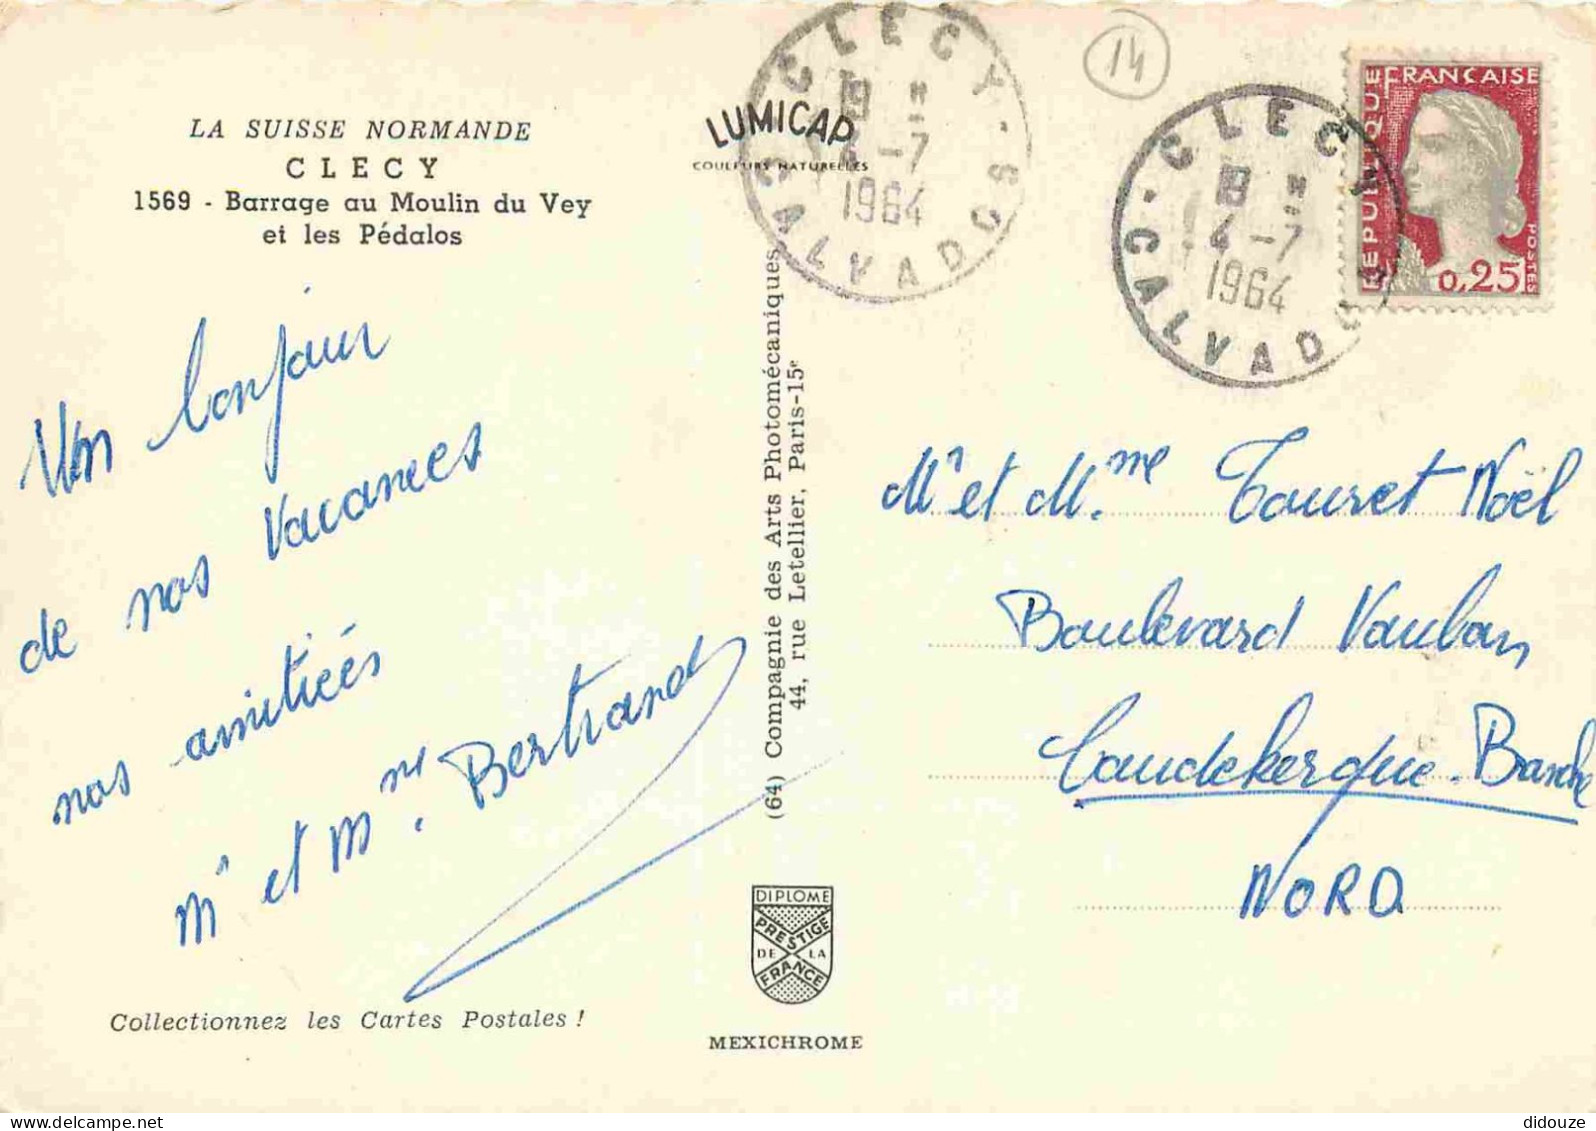 LA SUISSE NORMANDE
CLECY
1569 - Barrage au Moulin du Vey
et les Pédalos
Un bonjour
de nos vacances
nos amitiées
Mr et Mme. Bertrand
Collectionnez les Cartes Postales !
LUMICAP
COULEURS NATURELLES
CLECY - CALVADOS
19 H
4-7
1964
(64) Compagnie des Arts Photomécaniques
44, rue Letellier, Paris-15e
DIPLOME
PRESTIGE
DE LA
FRANCE
MEXICHROME
14
CLECY - CALVADOS
19 H
4-7
1964
REPUBLIQUE FRANÇAISE
POSTES
0,25
Mr et Mme. Touret Noël
Boulevard Vauban
Coudekerque-Branche
NORD
delcampe.net
didouze